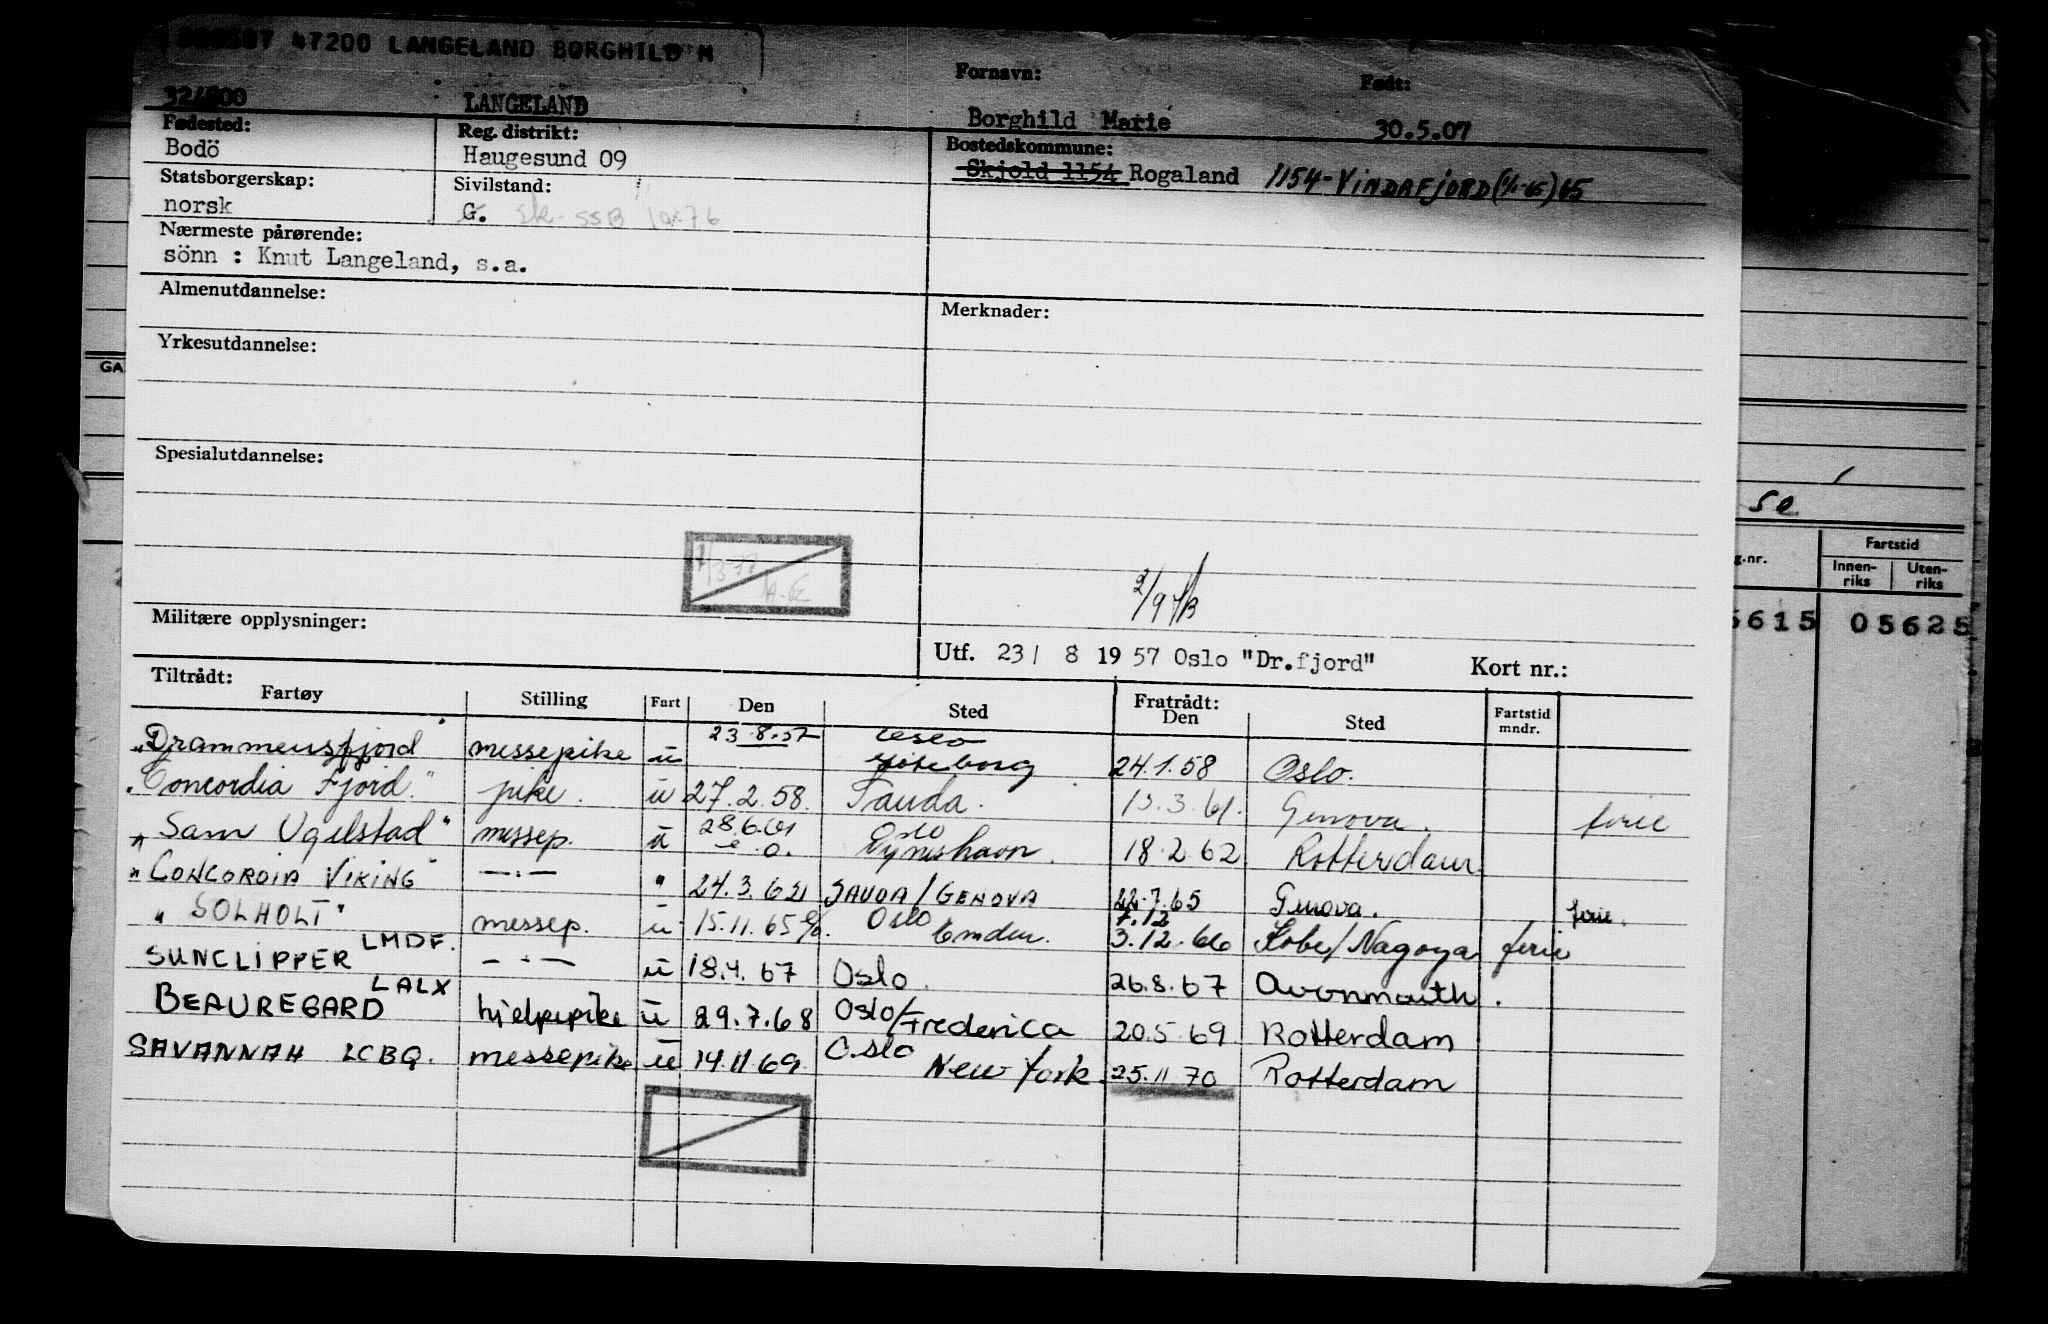 47200 LANGELAND BORGHILD M
Fornavn: Født:
LANGELAND Borghild Marie 30.5.07
Fødested: Reg. distrikt: Bostedskommune:
Bodö Haugesund 09 Skjold 1154 Rogaland 1154-VINDAFJORD (1/1-65) 65
Statsborgerskap: Sivilstand:
norsk G. Ek- SSB 10-76
Nærmeste pårørende:
sönn : Knut Langeland, s.a.
Almenutdannelse: Merknader:
Yrkesutdannelse:
GA
Spesialutdannelse:
50
Fartstid
g.nr. Innen-riks Uten-riks
5615 05625
Militære opplysninger:
Utf. 23/ 8 1957 Oslo "Dr.fjord" Kort nr.:
Tiltrådt: Fratrådt:
Fartøy Stilling Fart Den Sted Den Sted Fartstid mndr.
23.8.57 Oslo
"Drammensfjord messepike u Göteborg 24.1.58 Oslo.
"Concordia Fjord." pike. u 27.2.58. Sauda. 15.3.61. Genova. ferie
28.6.61 Oslo
"Sam Ugelstad" messep. u e.o. Nyneshavn. 18.2.62 Rotterdam
"CONCORDIA VIKING" —·— " 24.3.62 SAUDA/GENOVA 22.7.65 Genova. ferie.
7.12
"SOLHOLT" messep. u 15.11.65 e/o. Oslo Emden. 3.12.66 Kobe/Nagoya ferie
SUNCLIPPER LMDF. —·— u 18.4.67 Oslo. 26.8.67 Avonmouth.
BEAUREGARD LALX hjelpepike u 29.7.68 Oslo/Fredericia 20.5.69 Rotterdam
SAVANNAH LCBQ. messepike u 14.11.69 Oslo New York 25.11.70 Rotterdam